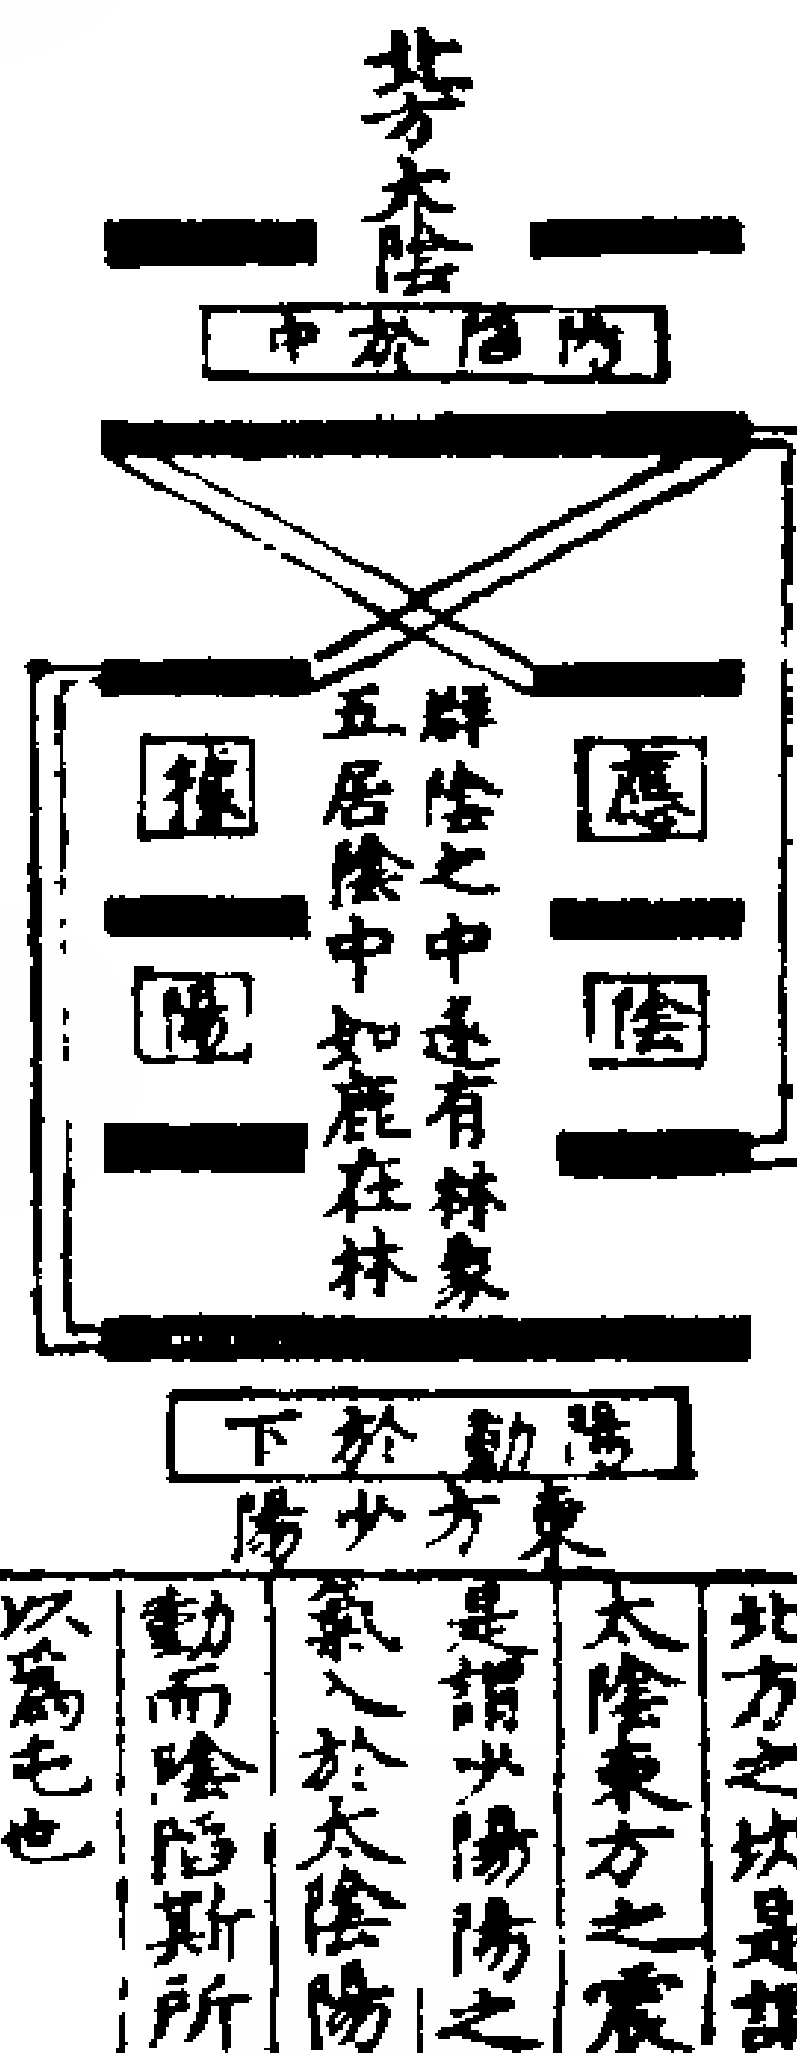 北方大陰
陽陷於中
應
陰
群陰之中遂有林象
五居陰中如鹿在林
據
陽
陽動於下
東方少陽
北方之坎是謂
太陰東方之震
是謂少陽陽之
氣入於太陰陽
動而陰陷斯所
以爲屯也